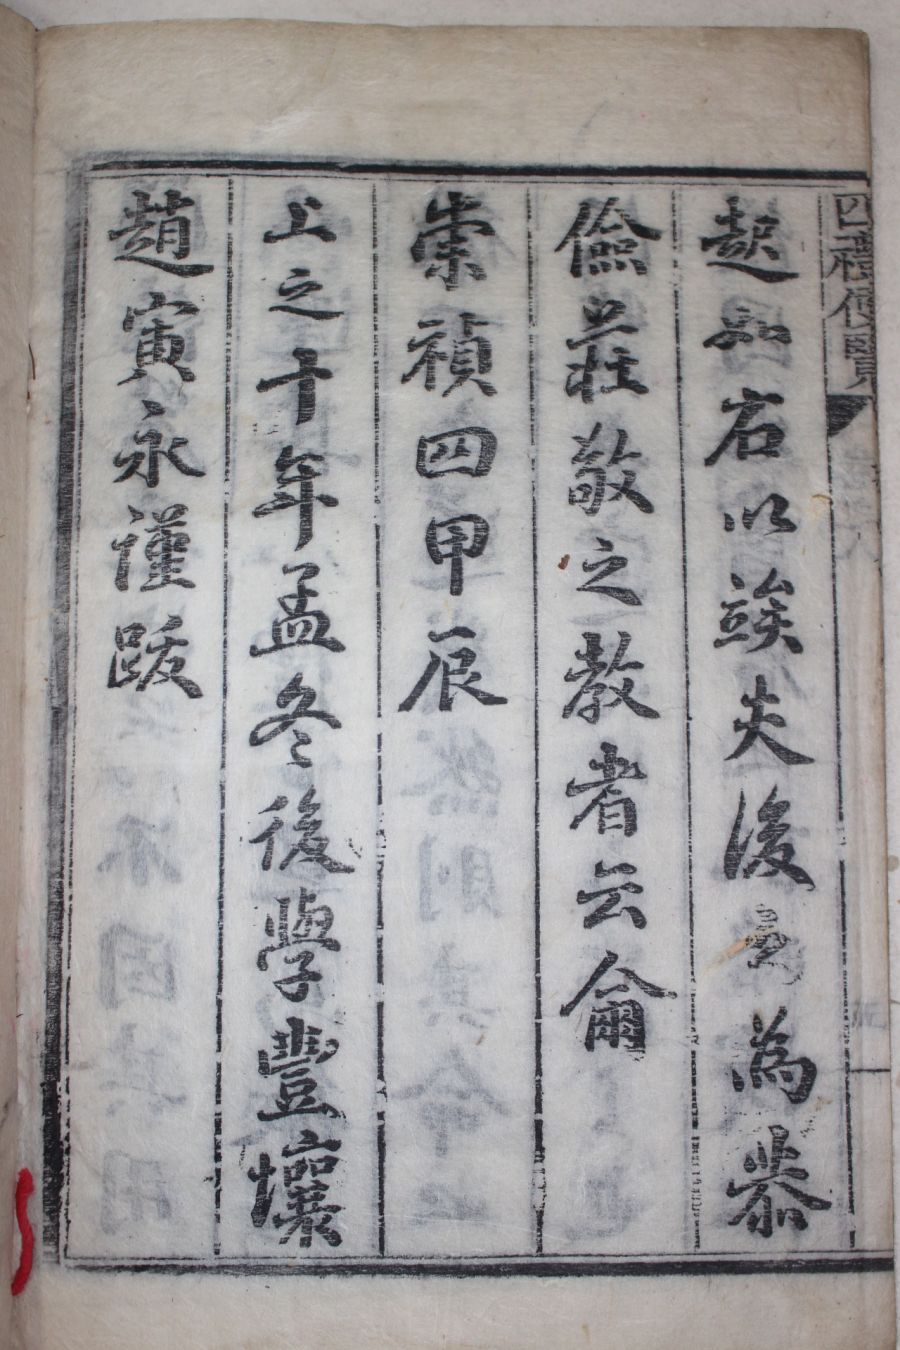 四禮便覽
趣如右以竢夫後之為恭
儉莊敬之教者云爾
崇禎四甲辰
上之十年孟冬後學豐壤
趙寅永謹跋